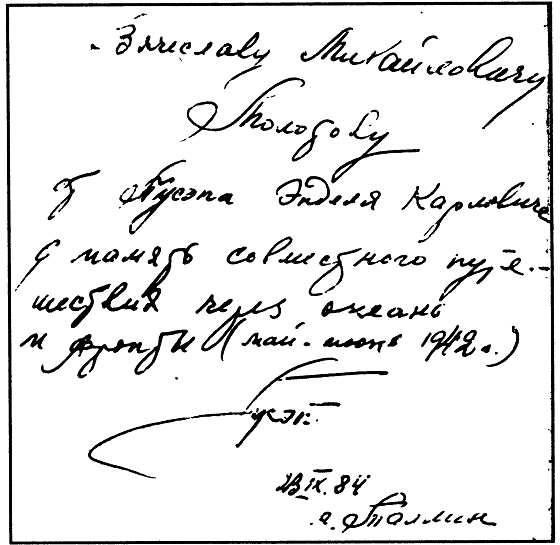 Вячеславу Михайловичу
Молотову
от Пусэпа Энделя Карловича
в память совместного путе-
шествия через океаны
и фронты (май-июнь 1942 г.)
Пусэп
23 IX. 84
г. Таллин